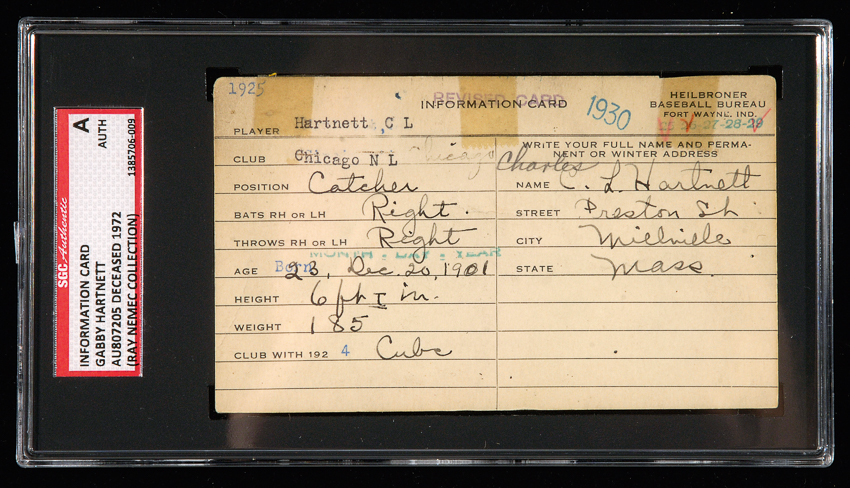 A
AUTH
1385706-009
SGC Authentic
INFORMATION CARD
GABBY HARTNETT
AU807205 DECEASED 1972
(RAY NEMEC COLLECTION)
1925
REVISED CARD
INFORMATION CARD
1930
HEILBRONER
BASEBALL BUREAU
FORT WAYNE, IND.
27-28-29
PLAYER Hartnett, C L
CLUB Chicago N L Chicago
WRITE YOUR FULL NAME AND PERMA-
NENT OR WINTER ADDRESS
POSITION Catcher
Charles
NAME C. L. Hartnett
BATS RH OR LH Right.
STREET Preston St.
THROWS RH OR LH Right
CITY Millville
MONTH - DAY - YEAR
AGE Born 23, Dec. 20, 1901
STATE Mass.
HEIGHT 6 ft I in.
WEIGHT 185
CLUB WITH 192 4 Cubs